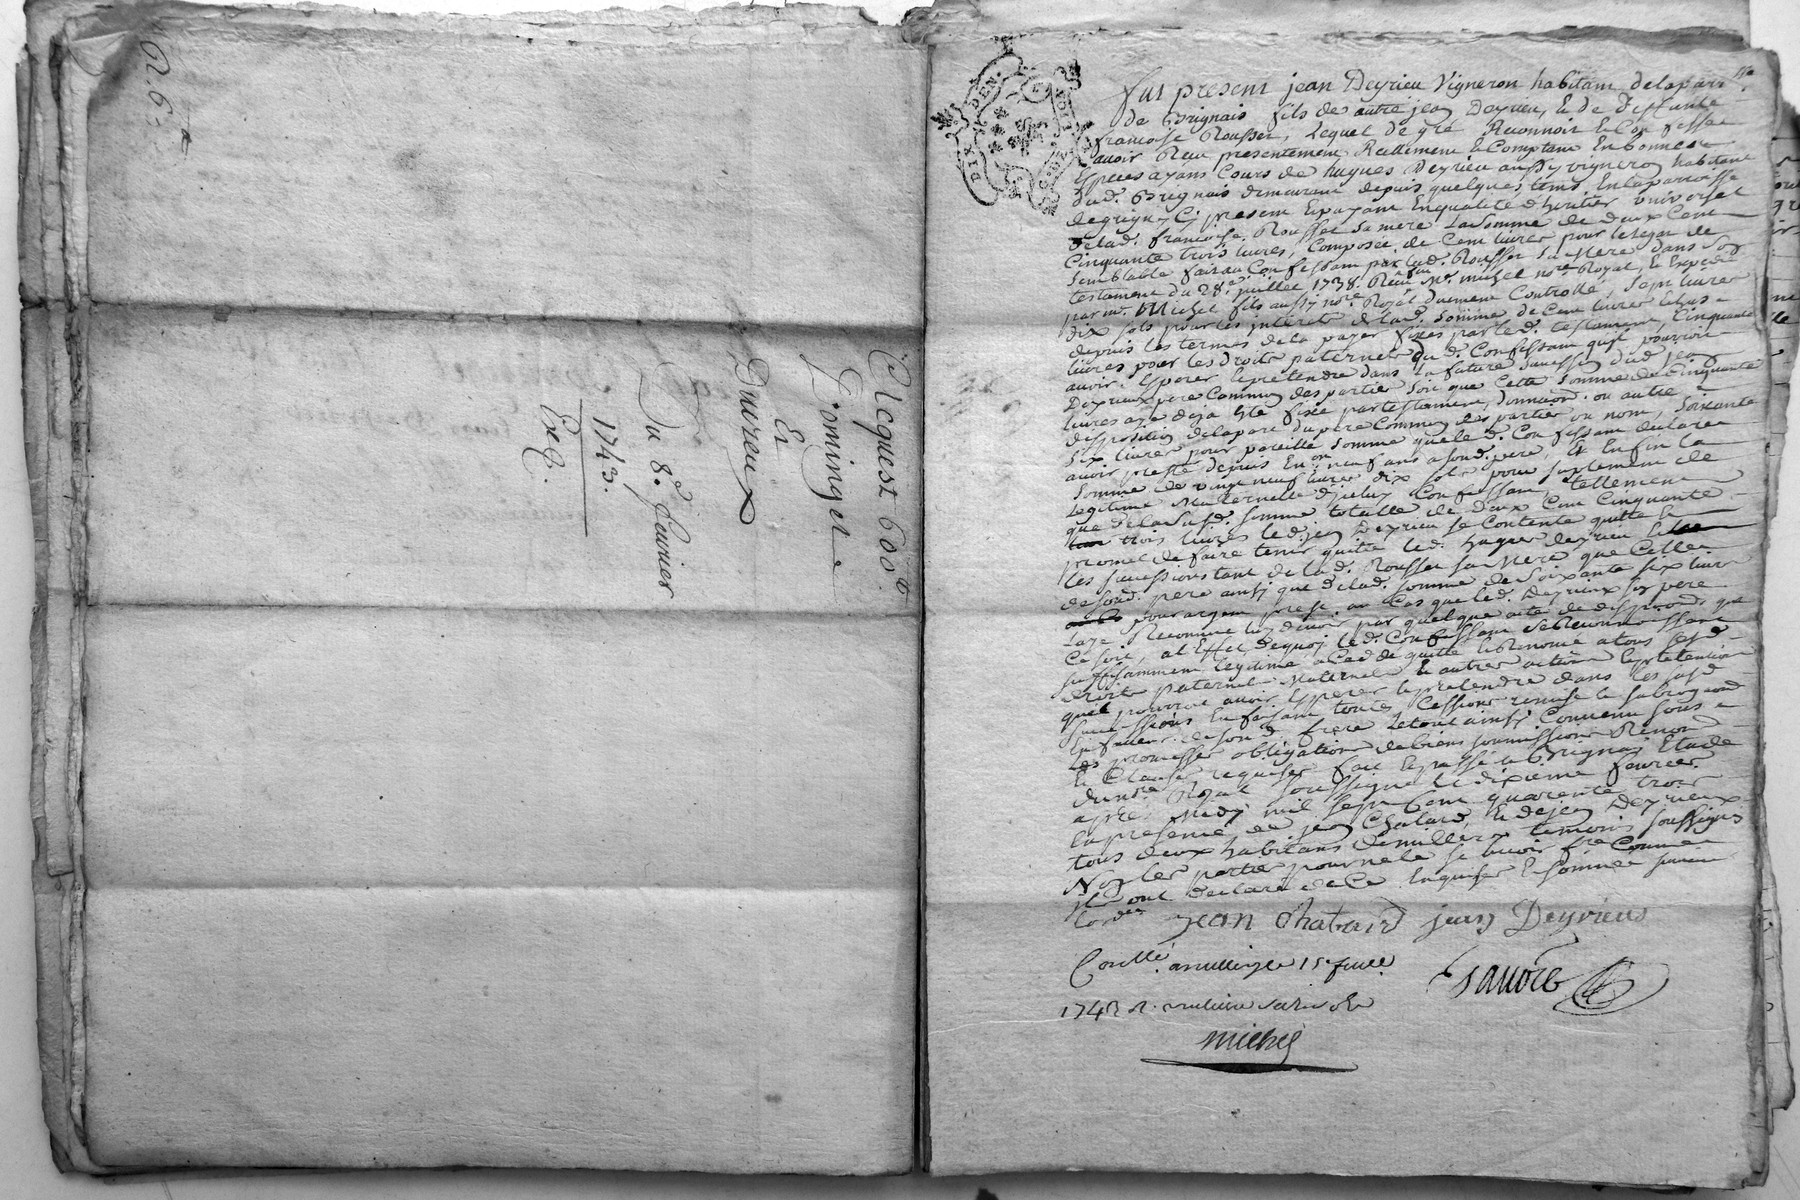 R. 6
Acquest 600
Dominget
Et
Duvreux
Du 8e. fevrier
1743.
Exe.
DIX DEN.
LYON
fut present jean Deyrieu Vigneron habitant de la parr
de Brignais fils des autre jean Deyrieu, et de deffunte
francoise Rousset, Lequel de gré Reconnoit et Confesse
avoir Reeu presentement Reellement et Comptant En bonnes
Especes ayans Cours de hugues Deyrieu aussy vigneron habitant
dud. Brignais demeurant depuis quelques tems En la parroisse
de grigny Cy present Et payant En qualité d'heritier universel
de lad. francoise Rousset sa mere La somme de deux Cent
Cinquante trois livres, Composée de Cent livres pour le legat de
semblable fait au Confessant par lad. Rousset sa Mere dans son
testament du 28e. juillet 1738. Reeu Me. michel nore. Royal, et Expedié
par me. Michel fils aussy nore. Royal duement Controllé, sept livres
dix sols pour les interets de lad. somme de Cent livres Echus
depuis les termes de la payer fixes par led. testament, Cinquante
livres pour les droits paternels qud. Confessant qu'il pourroit
avoir Esperer et pretendre dans la future succession dud. jean
Deyrieux pere Commun des parties soit que Cette somme de Cinquante
livres aye deja Eté fixée par testament, donnation ou autre
disposition de la part du pere Commun des parties ou non, soixante
six livres pour pareille somme que led. Confessant declare
avoir presté depuis En on neuf ans a sond. pere, Et Enfin la
somme de vingt neuf livres dix sols pour suplement de
legitime Maternelle dieluy Confessant, tellement
que de la susd. somme totalle de deux Cent Cinquante
trois livres led. jean Deyrieu se Contente quitte et
promet de faire tenir quitte led. hugues Deyrieu
les successions tant de lad. Rousset sa Mere que Celle
de sond. pere ainsy que de lad. somme de soixante six livres
pour argent presté, au Cas que led. Deyrieux son pere
l'aye Reconnue luy devoir par quelque acte de disposions que
Ce soit, a l'Effet dequoy led. Confessant se Reconnoissant
suffisamment legitimé a Cedé quitté et Renoncé a tous sesd.
droits paternels Maternels et autres actions et pretentions
qu'il pourroit avoir Esperer et pretendre dans les susd.
successions En faisant toutes Cessions remise et subrogaons
En faveur de sond. frere Le tout ainsy Convenu sous
Les promesses obligations de biens soumissions Renon
Et Clauses requises fait Et passé aud. Brignais Etude
du nore. Royal soussigné le dixieme fevrier
apres Midy mil sept Cent quarente trois
En presence de jean Chatard, Et de jean Deyrieux
tous deux habitans de millery temoins soussignés
Non les parties pour ne le sçavoir fre Comme
Ils ont declaré de Ce Enquises Et sommés suivant
l'ordce
jean Chatard jean Deyrieux
Conllé a millery le 15 fevr
1743 R.
Savore
michel